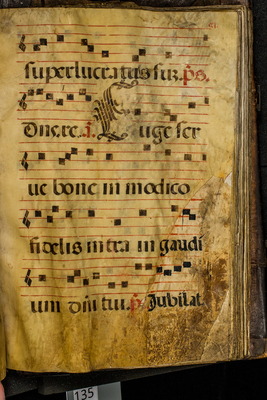 super lucratus sum. ps.
Dñe. re. a. Euge ser
ue bone in modico
fidelis intra in gaudi
um dñi tui. p. Jubilat.
135